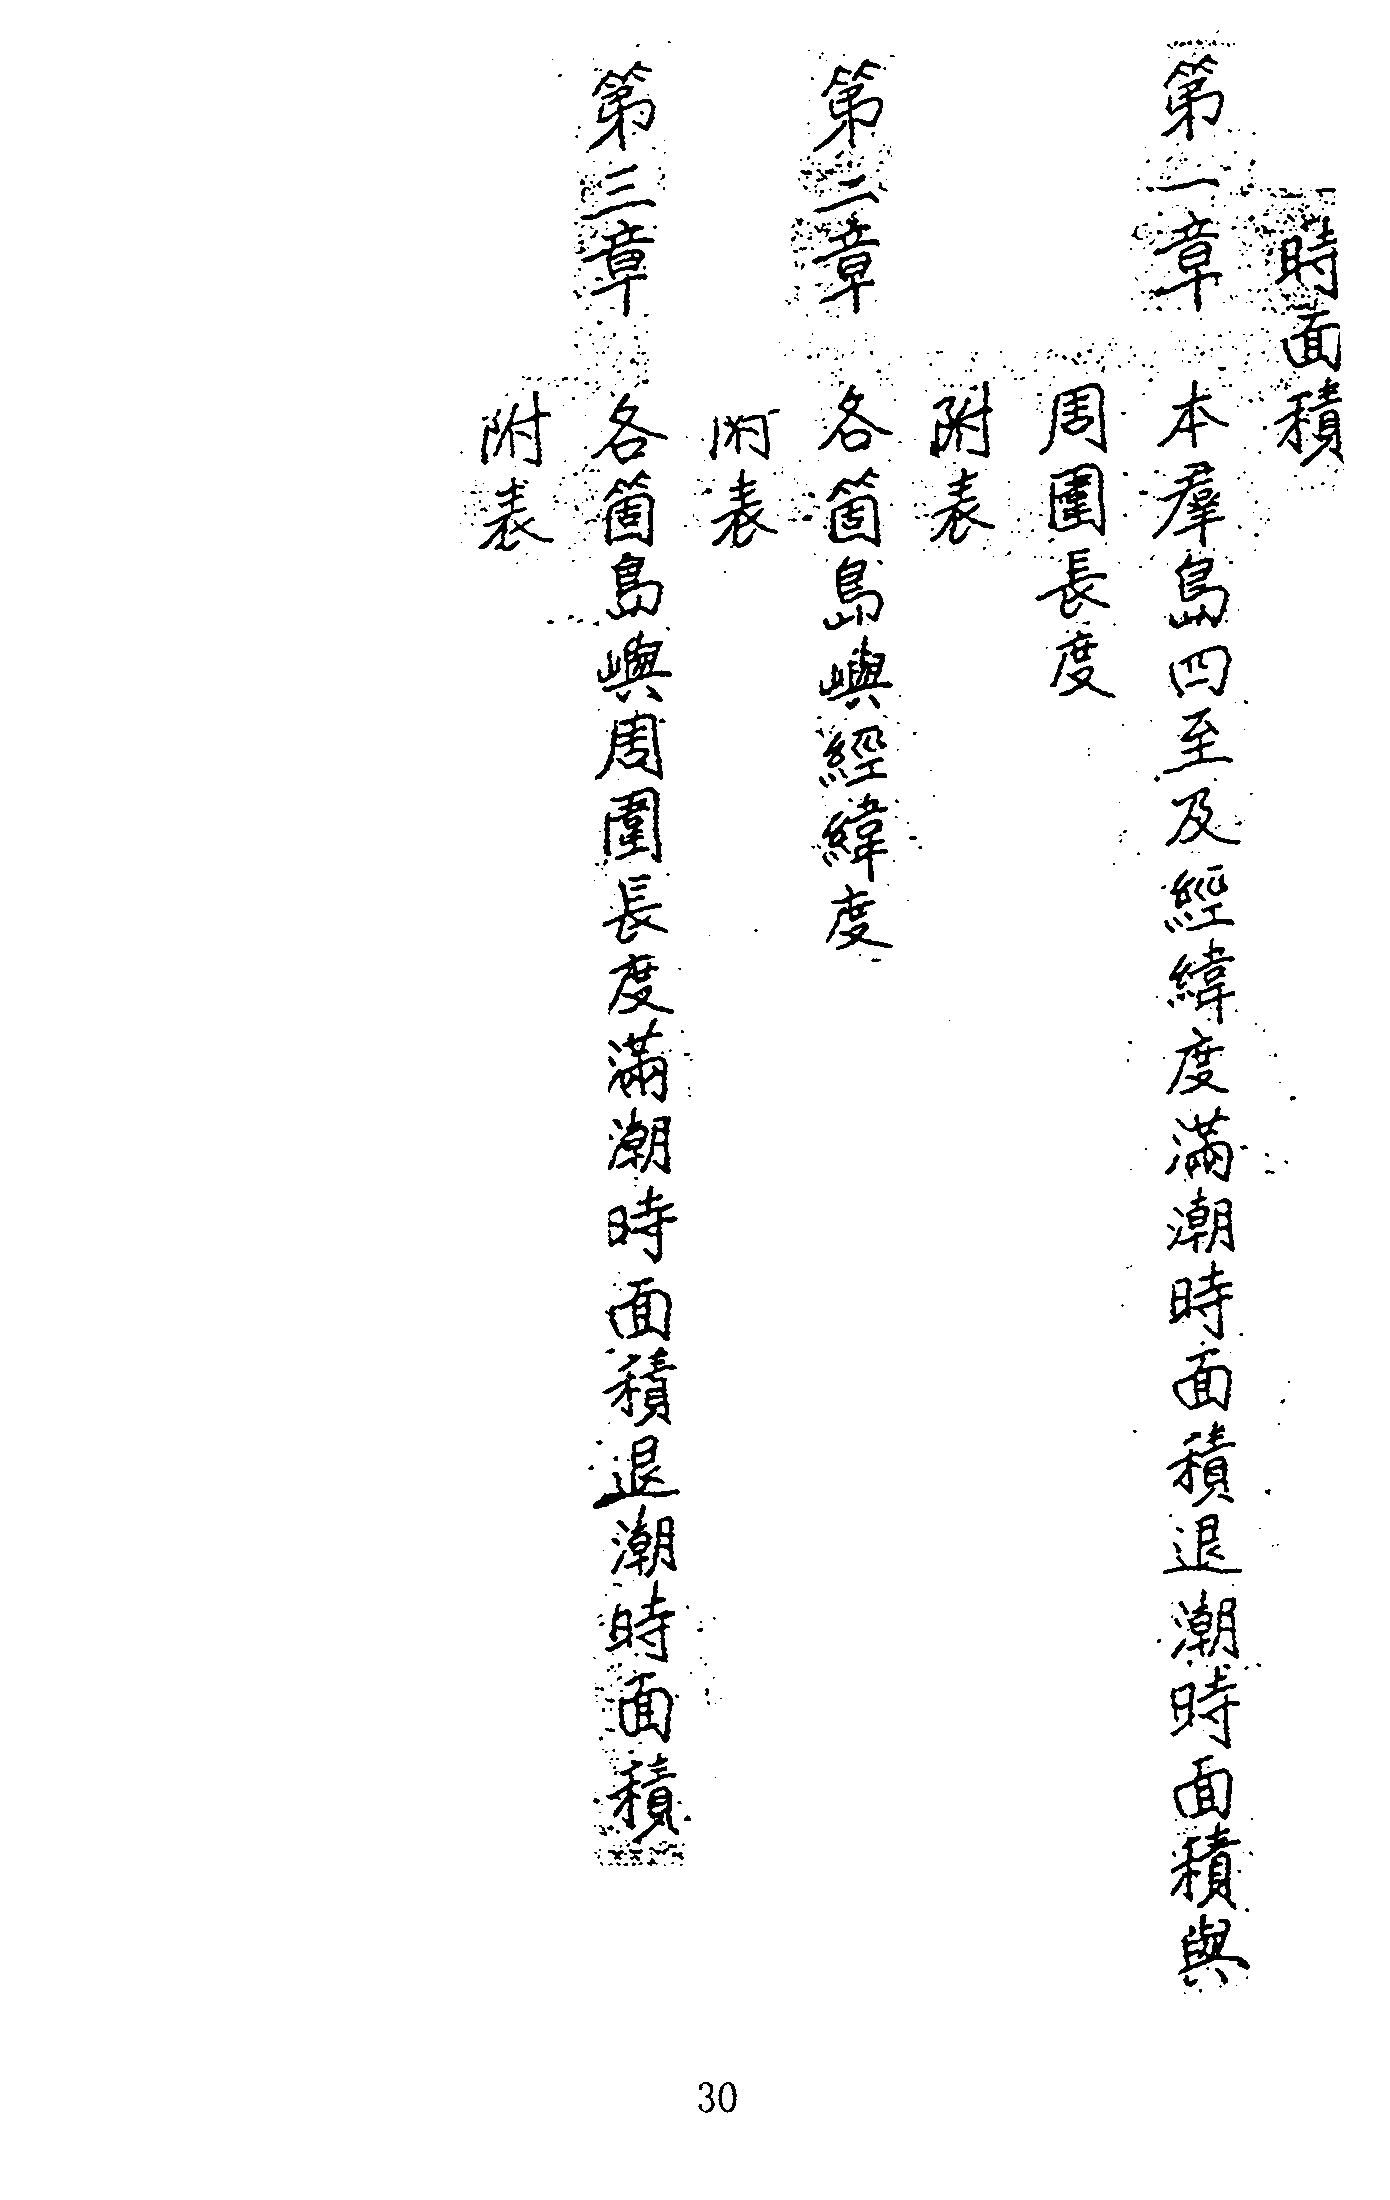 時面積
第一章 本羣島四至及經緯度滿潮時面積退潮時面積與
周圍長度
附表
第二章 各箇島嶼經緯度
附表
第三章 各箇島嶼周圍長度滿潮時面積退潮時面積
附表
30